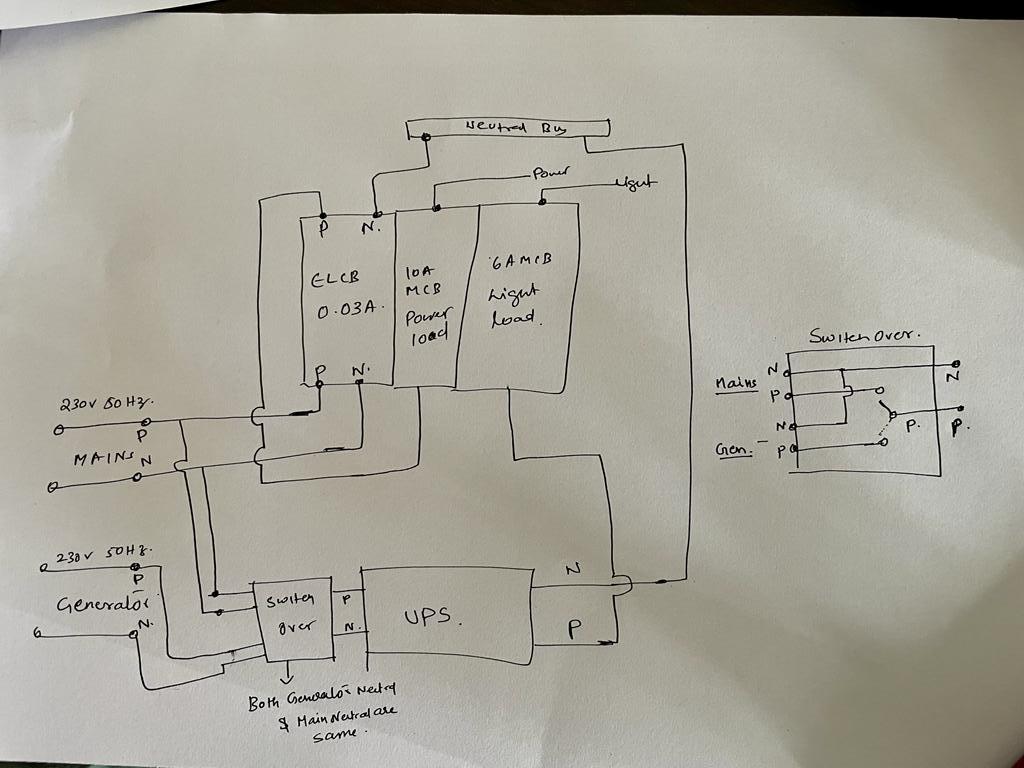 Neutral Bus
Power
Light
P N.
ELCB
0.03A.
10A
MCB
Power
load
6AMCB
Light
Load.
P N.
230V 50Hz.
P
MAINS N
230V 50Hz.
P
Generator
N.
Switch
Over
P
N.
UPS.
N
P
Both Generator Neutral
& Main Neutral are
same.
Switch Over.
Mains N
P
N
Gen. P
P.
N
P.